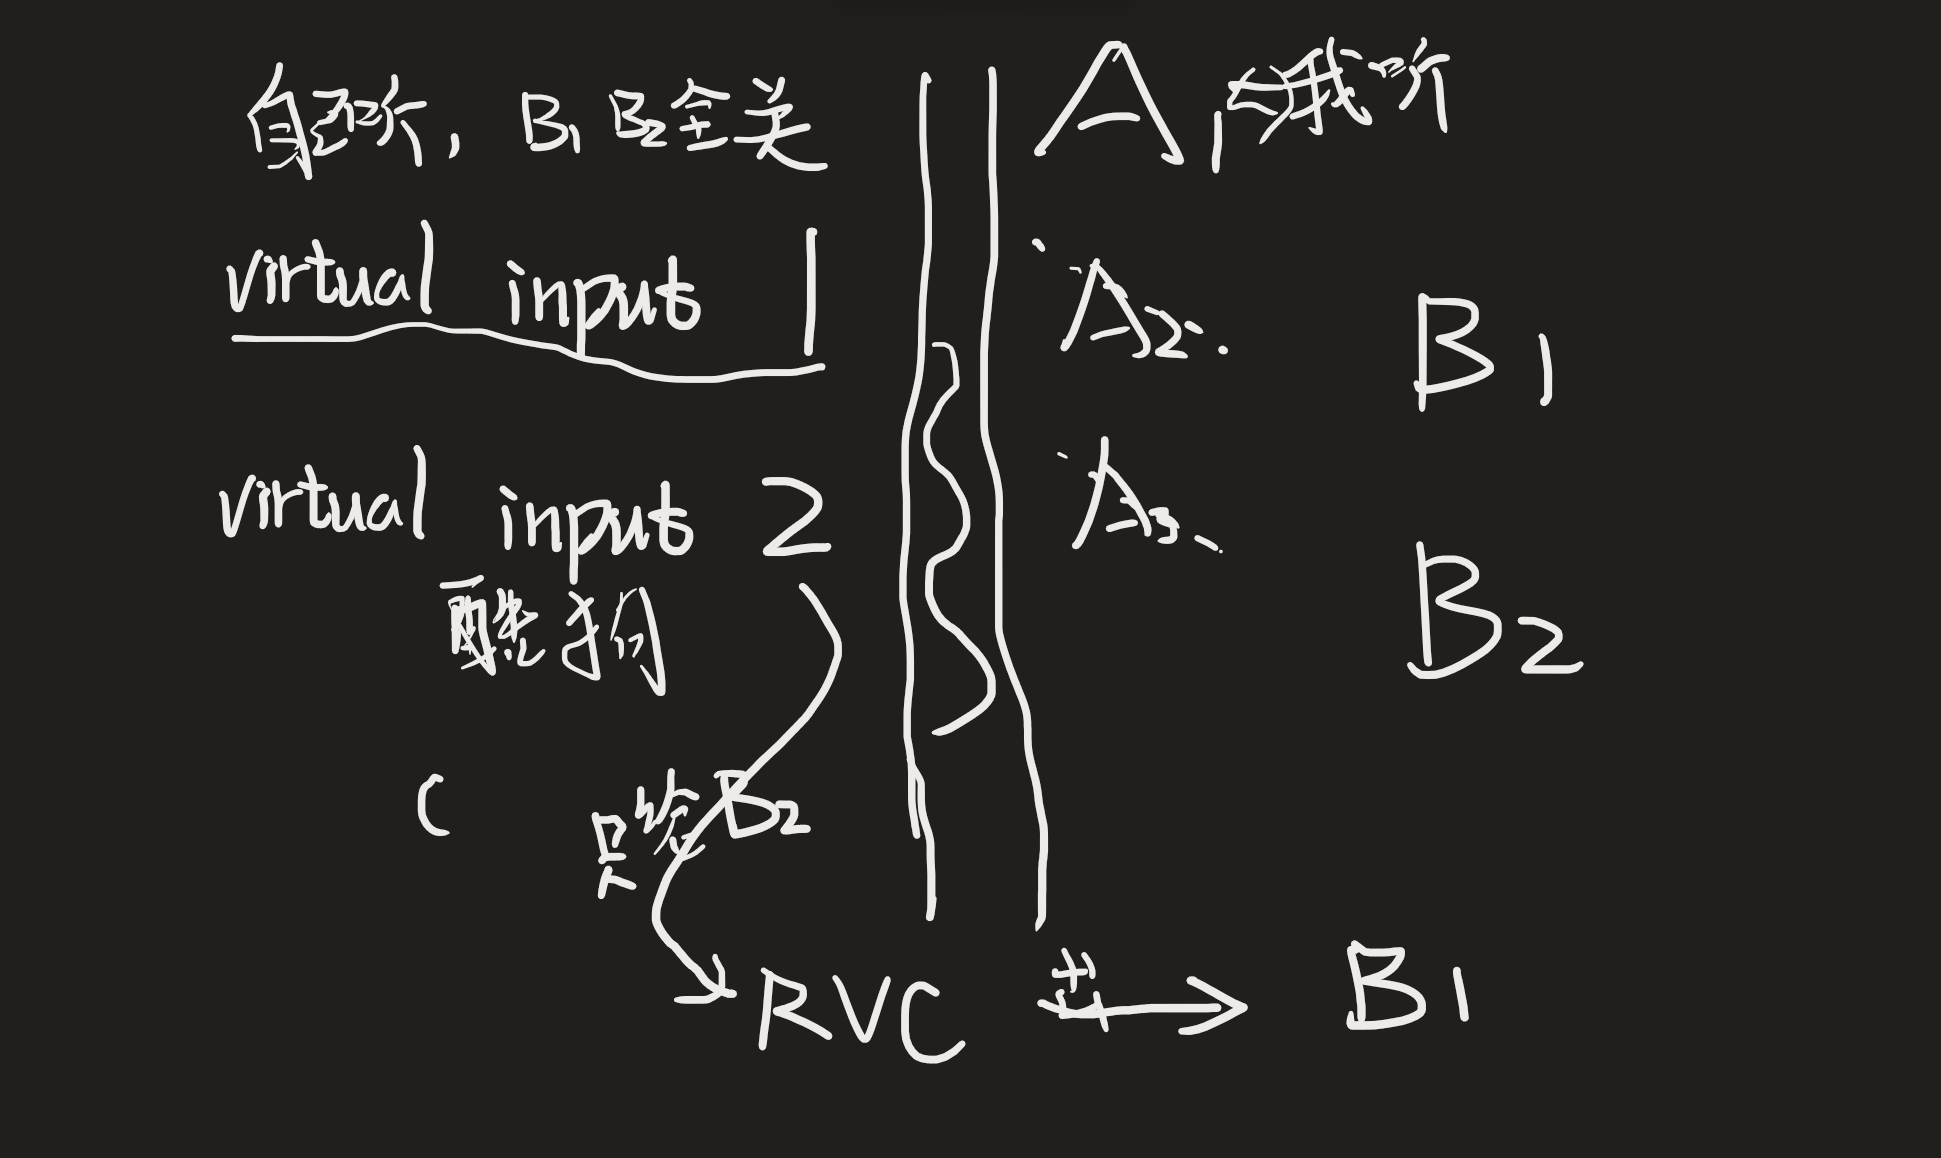 自己听, B1 B2全关
virtual input 1
virtual input 2
酷狗
C 只给B2
A1 我听
A2
B1
A3
B2
RVC
B1